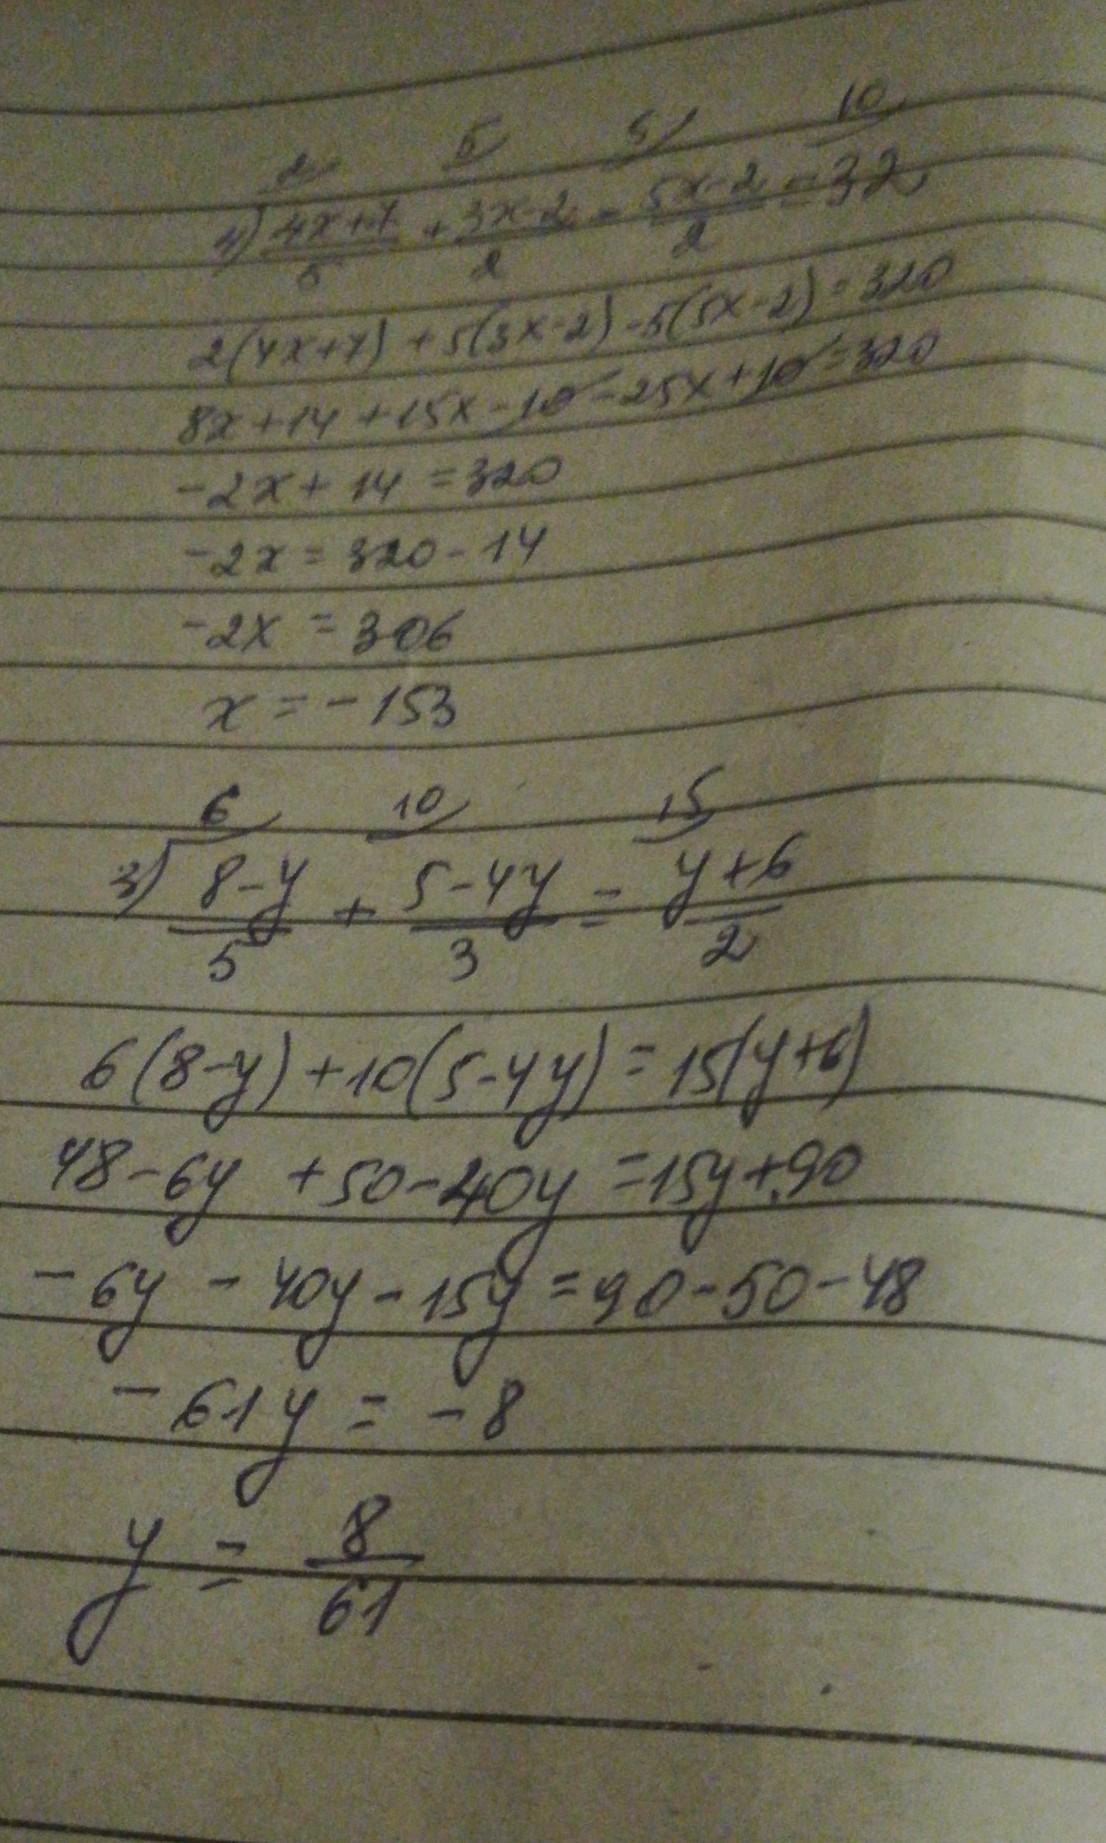 2 5 5 10
4) (4x+7)/5 + (3x-2)/2 - (5x-2)/2 = 32
2(4x+7) + 5(3x-2) - 5(5x-2) = 320
8x+14+15x-10-25x+10=320
-2x+14=320
-2x=320-14
-2x=306
x=-153
6 10 15
3) (8-y)/5 + (5-4y)/3 = (y+6)/2
6(8-y)+10(5-4y)=15(y+6)
48-6y+50-40y=15y+90
-6y-40y-15y=90-50-48
-61y=-8
y=8/61